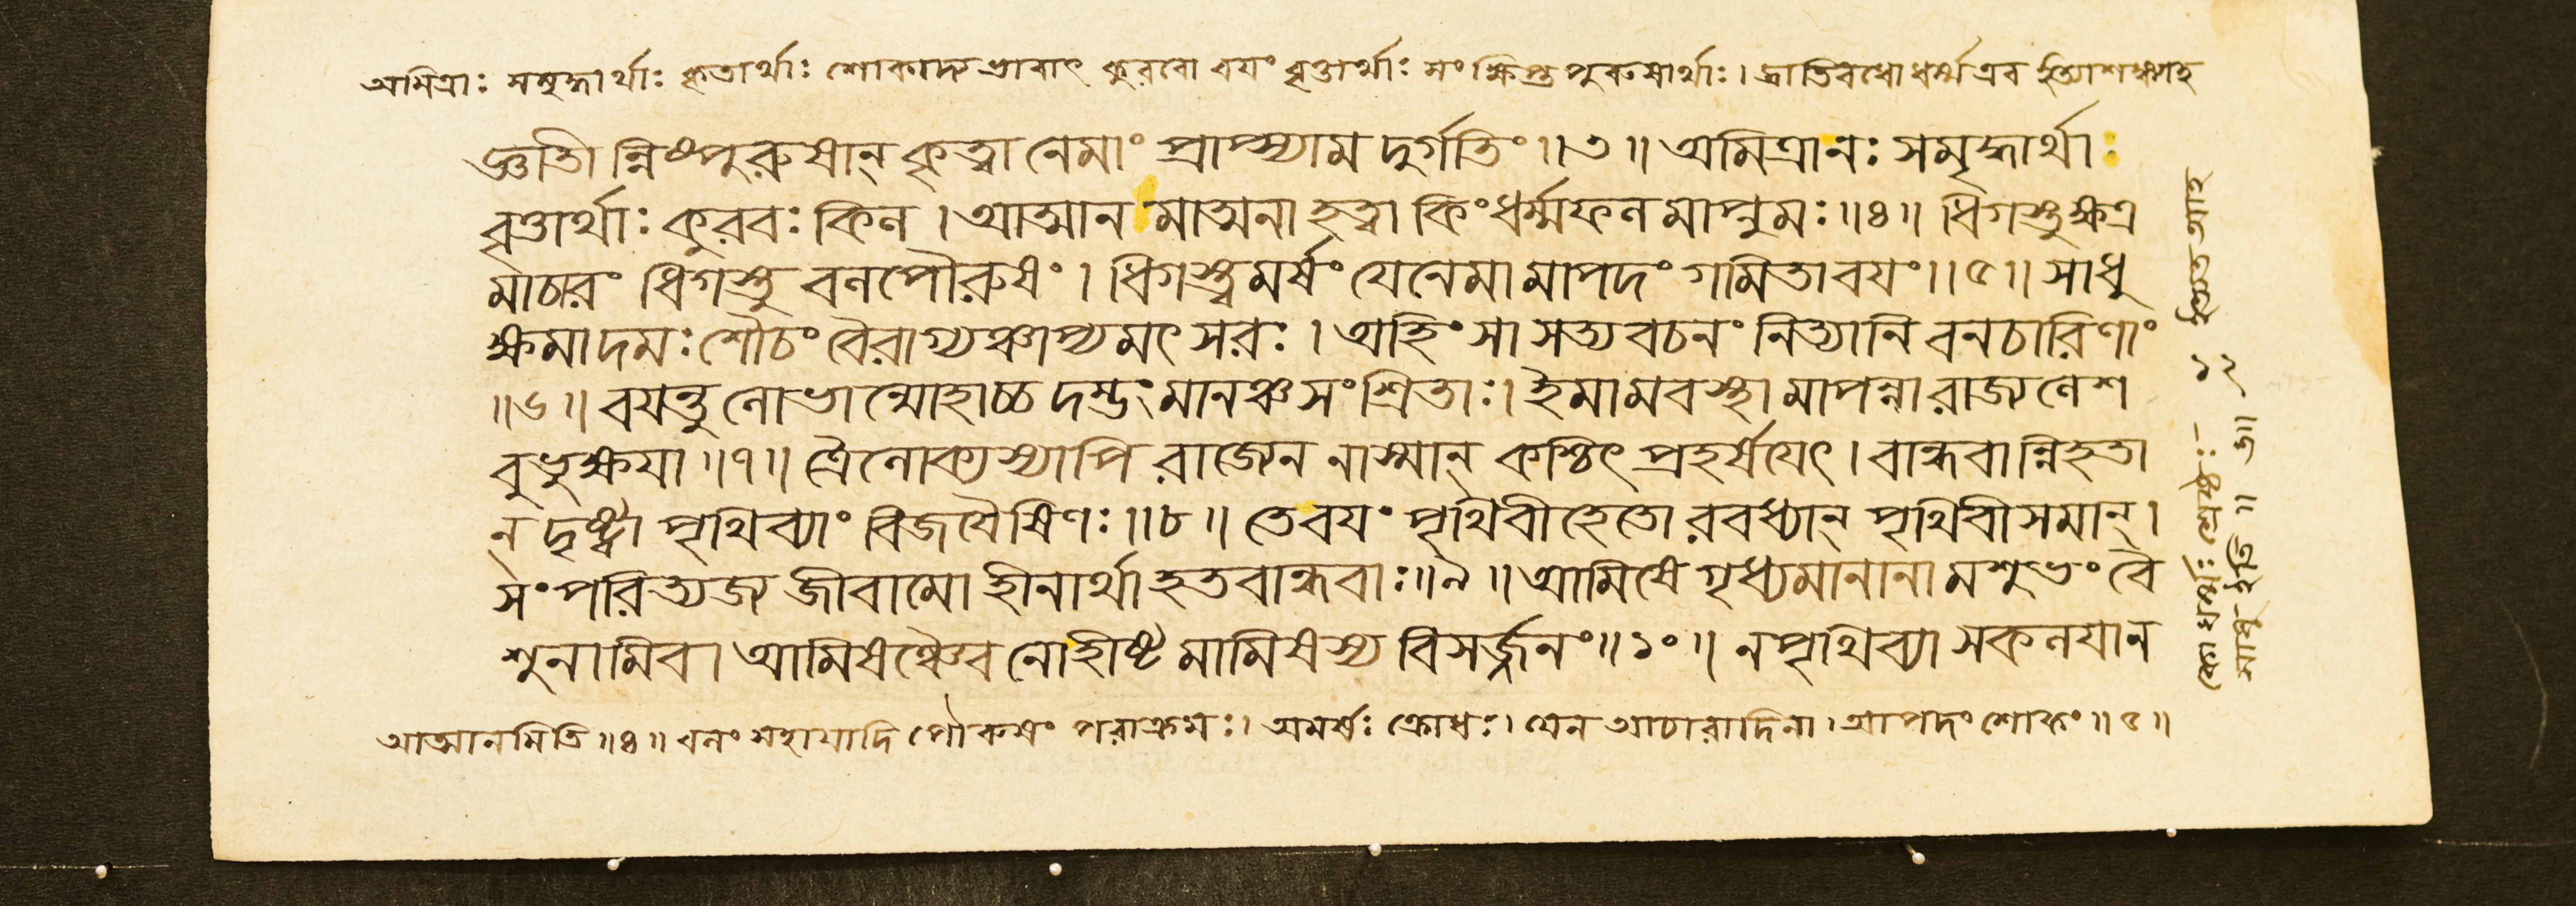 অমিত্রাঃ সমৃদ্ধার্থাঃ কৃতার্থাঃ শোকাদ্যভাবাৎ কুরবো বয়ং বৃত্তার্থাঃ সংক্ষিপ্তপুরুষার্থাঃ। জ্ঞাতিবধো ধর্ম্ম এব ইত্যাশঙ্ক্যাহ
জ্ঞাতীন্নিষ্পুরুষান্ কৃত্বা নেমাং প্রাপ্স্যাম দুর্গতিং॥৩॥ অমিত্রানঃ সমৃদ্ধার্থাঃ
বৃত্তার্থাঃ কুরবঃ কিল। আত্মানমাত্মনা হত্বা কিং ধর্ম্মফলমাপ্নুমঃ॥৪॥ ধিগস্তু ক্ষত্র
মাচারং ধিগস্তু বলপৌরুষং। ধিগস্ত্বমর্ষং যেনেমামাপদং গমিতা বয়ং॥৫॥ সাধু
ক্ষমা দমঃ শৌচং বৈরাগ্যঞ্চাপ্যমৎসরঃ। অহিংসা সত্যবচনং নিত্যানি বনচারিণাং
॥৬॥ বয়ন্তু লোভান্মোহাচ্চ দম্ভং মানঞ্চ সংশ্রিতাঃ। ইমামবস্থামাপন্না রাজ্যলেশ
বুভুক্ষয়া॥৭॥ ত্রৈলোক্যস্যাপি রাজ্যেন নাস্মান্ কশ্চিৎ প্রহর্ষয়েৎ। বান্ধবান্নিহতা
ন্ দৃষ্ট্বা পৃথিব্যাং বিজয়ৈষিণঃ॥৮॥ তে বয়ং পৃথিবীহেতোরবধ্যান্ পৃথিবীসমান্।
সংপরিত্যজ্য জীবামো হীনার্থা হতবান্ধবাঃ॥৯॥ আমিষে গৃধ্যমানানামশুভং বৈ
শুনামিব। আমিষঞ্চৈব নোহীষ্টমামিষস্য বিসর্জ্জনং॥১০॥ ন পৃথিব্যা সকলয়া ন
আত্মানমিতি॥৪॥ বলং সহায়াদি পৌরুষং পরাক্রমঃ। অমর্ষঃ ক্রোধঃ। যেন আচারাদিনা। আপদং শোকং॥৫॥
কো ধর্ম্মঃ শ্রেষ্ঠঃ- ১২ ইত্যত আহ
সাধু-ইতি॥ ৬॥